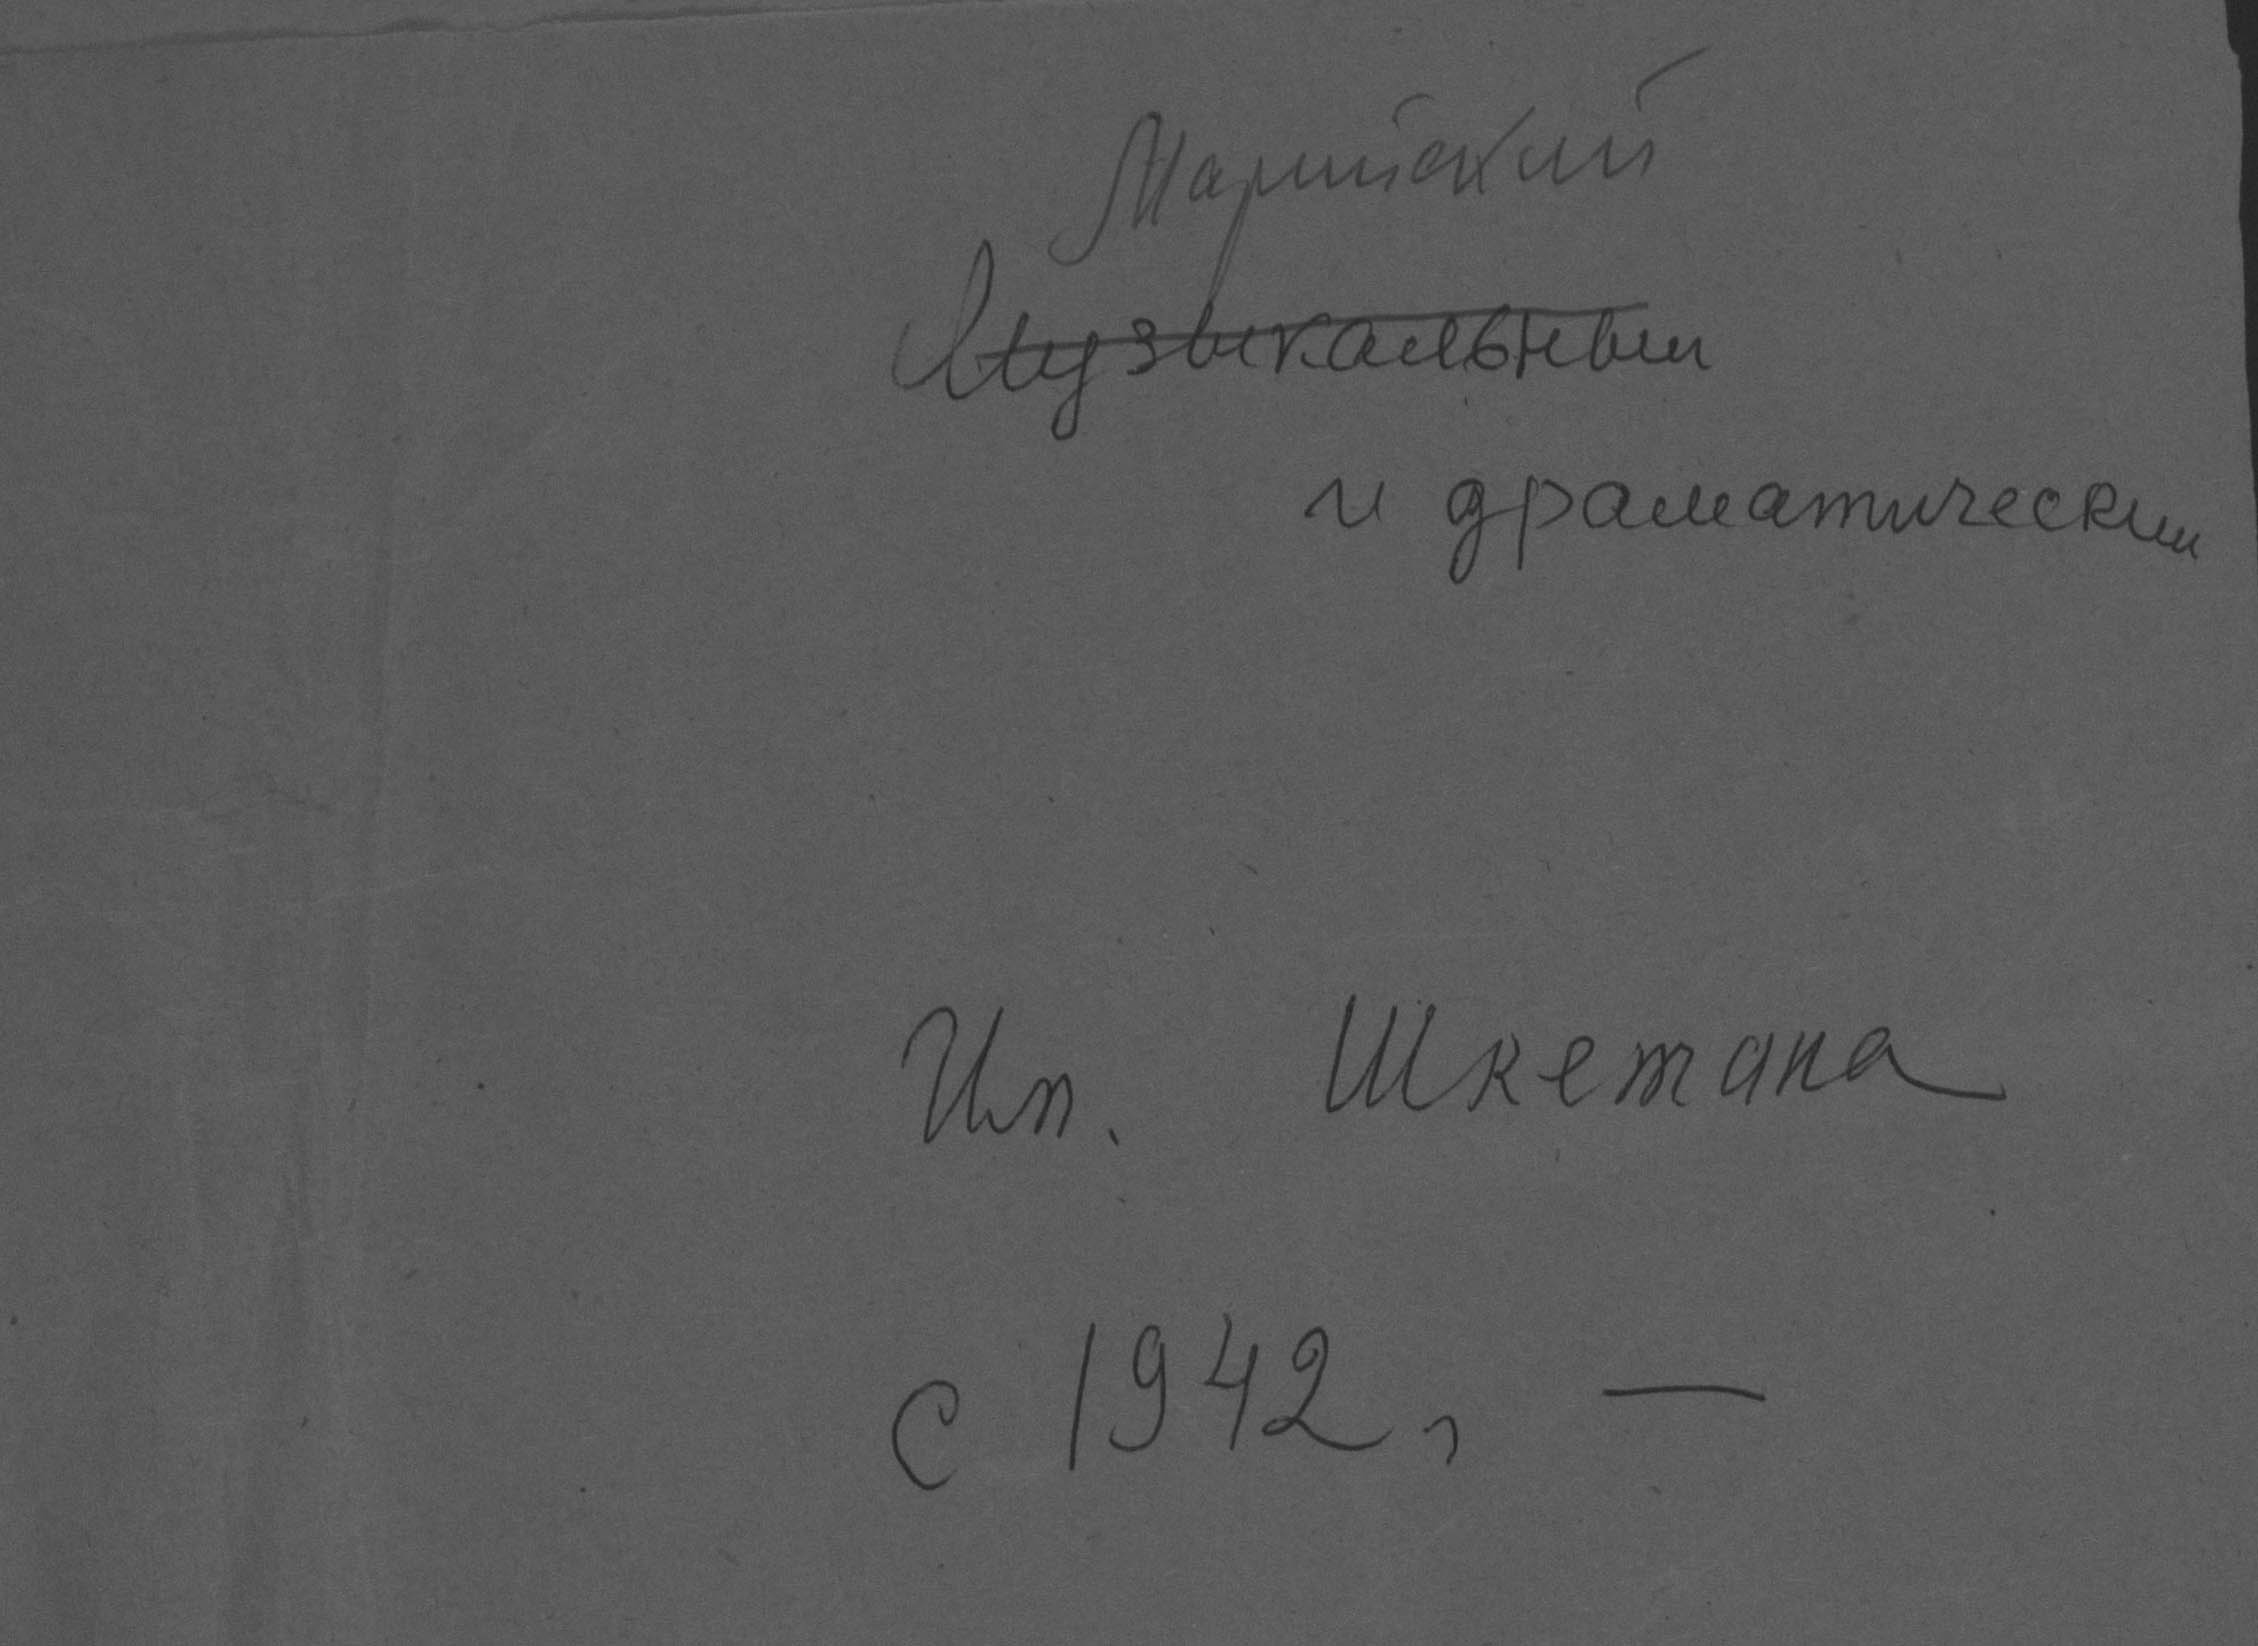 Марийский
Музыкальный
и драматический
Им. Шкетана
с 1942, —